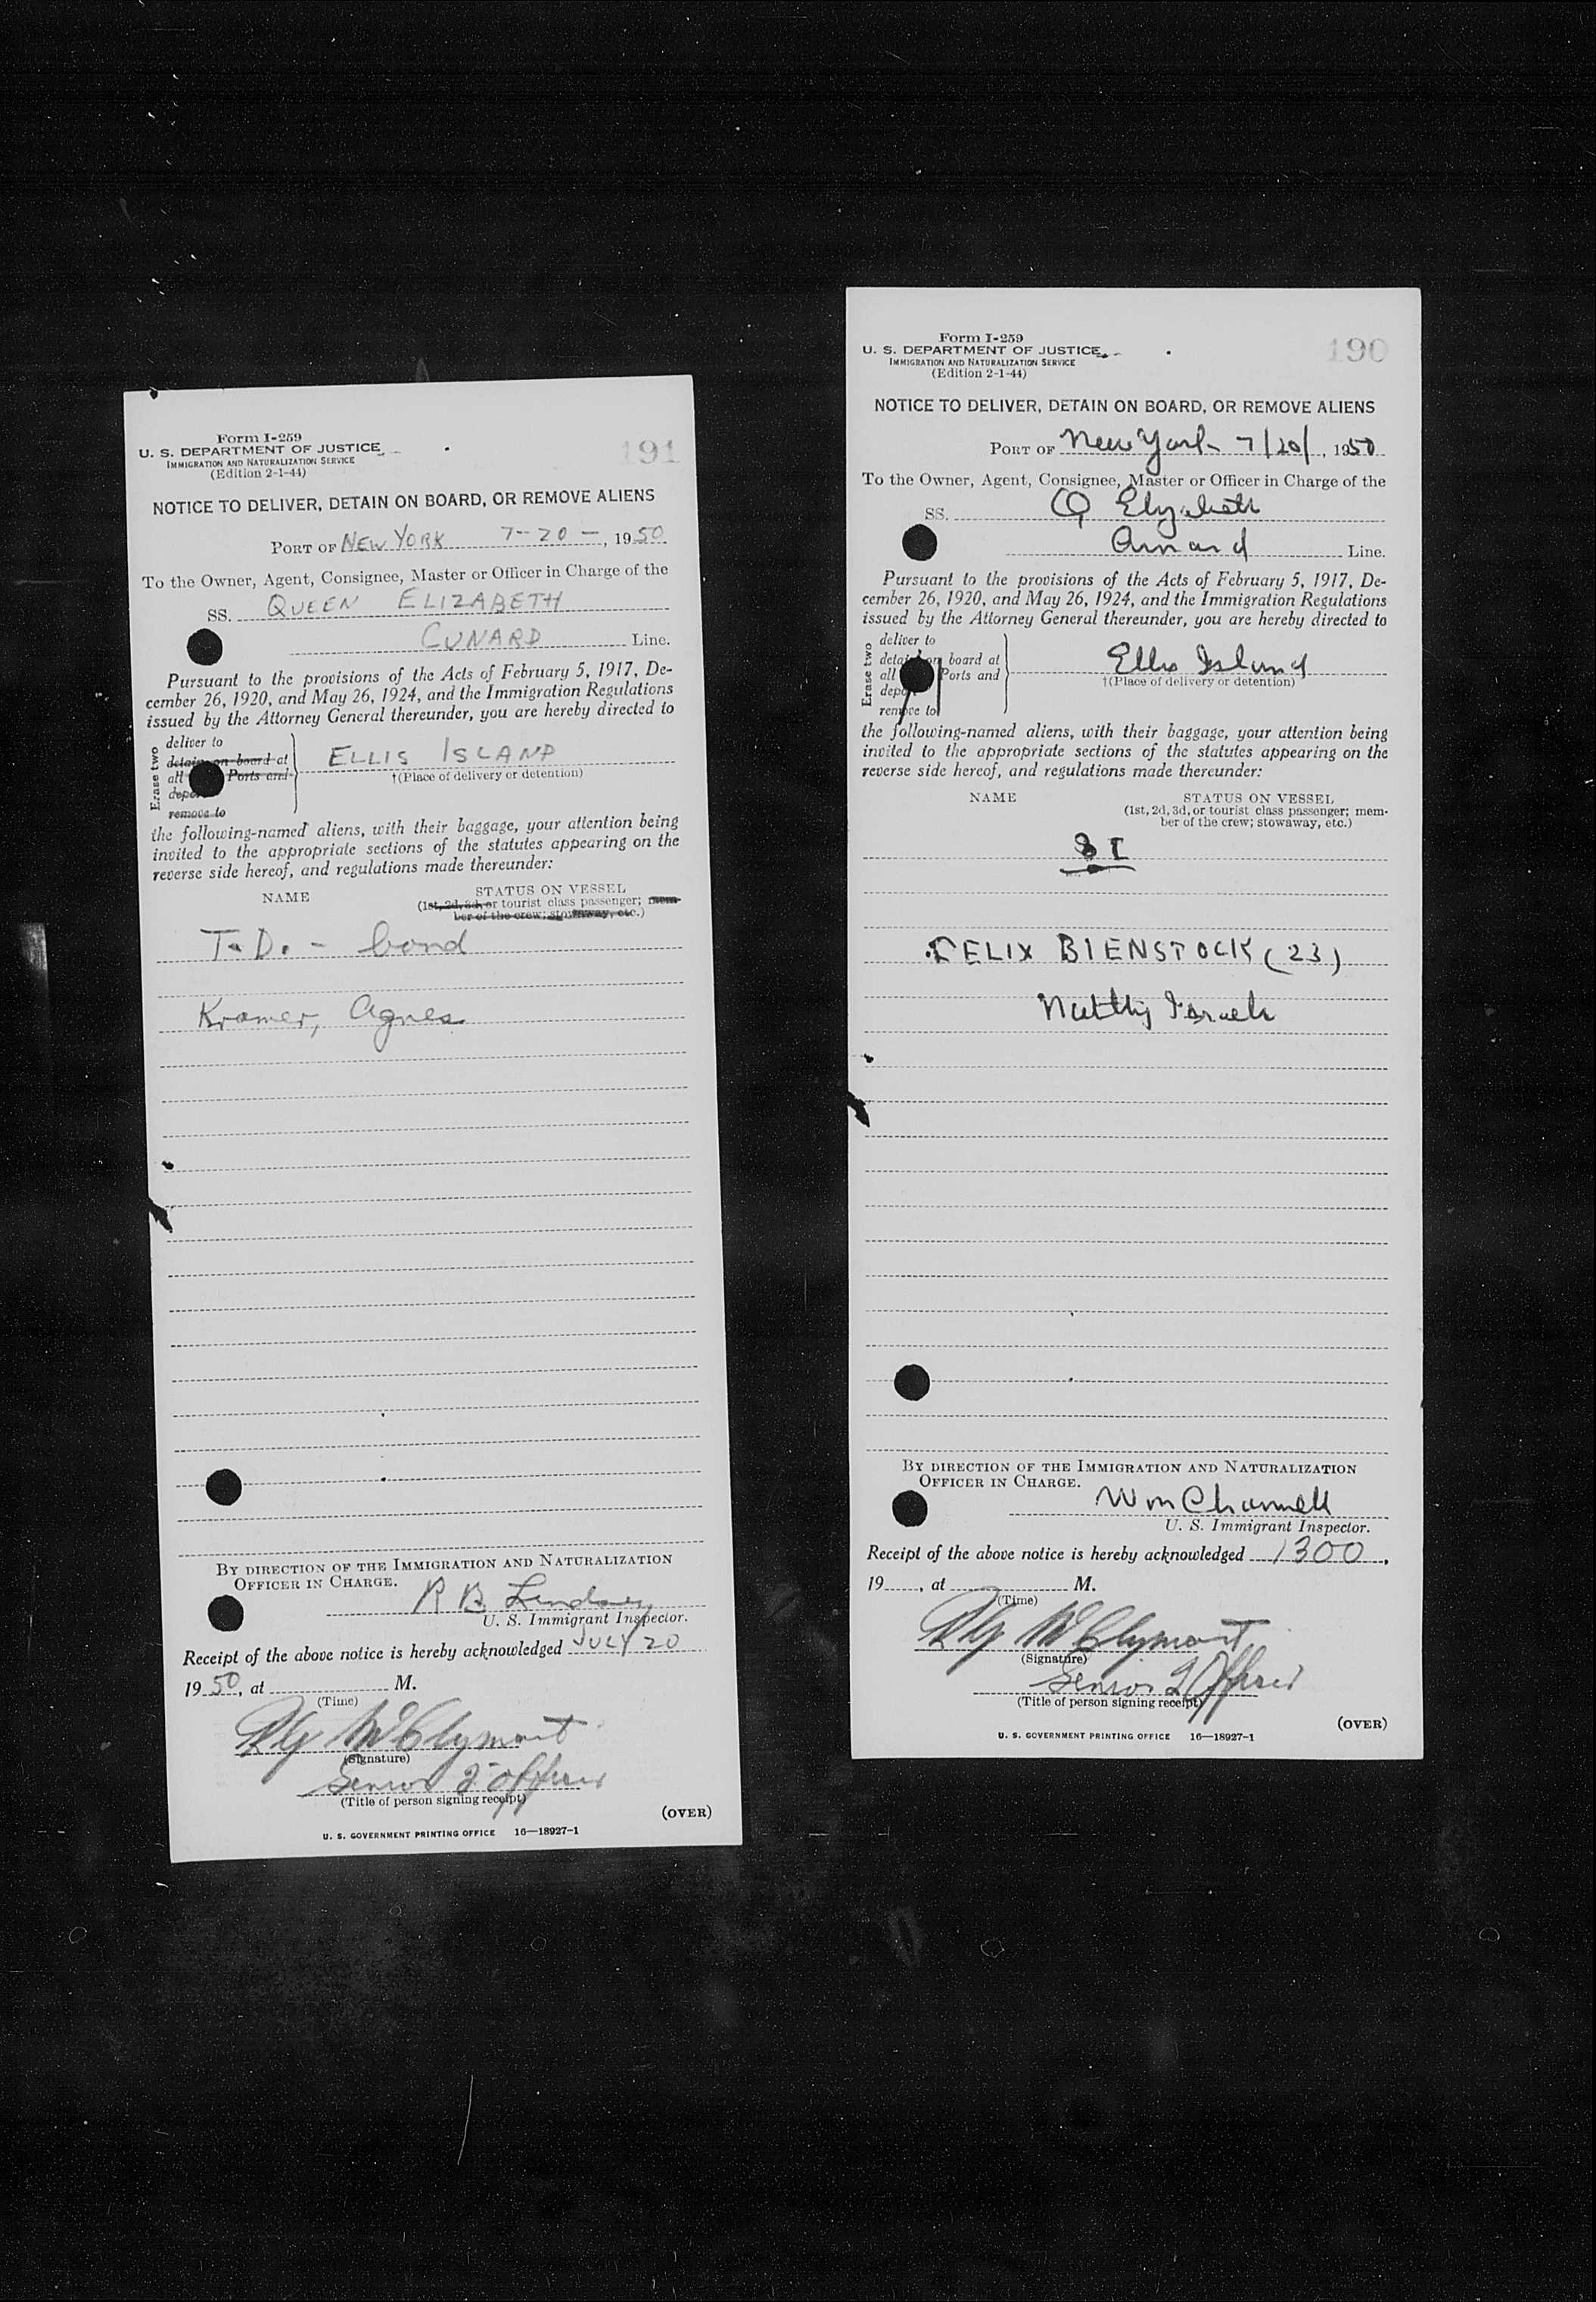 Form I-259
U. S. DEPARTMENT OF JUSTICE
IMMIGRATION AND NATURALIZATION SERVICE
(Edition 2-1-44)
191
NOTICE TO DELIVER, DETAIN ON BOARD, OR REMOVE ALIENS
PORT OF NEW YORK 7-20-, 1950
To the Owner, Agent, Consignee, Master or Officer in Charge of the
SS. QUEEN ELIZABETH
CUNARD Line.
Pursuant to the provisions of the Acts of February 5, 1917, De-
cember 26, 1920, and May 26, 1924, and the Immigration Regulations
issued by the Attorney General thereunder, you are hereby directed to
Erase two
deliver to
detain on board at
all Ports and
remove to
ELLIS ISLAND
†(Place of delivery or detention)
the following-named aliens, with their baggage, your attention being
invited to the appropriate sections of the statutes appearing on the
reverse side hereof, and regulations made thereunder:
NAME STATUS ON VESSEL
(1st, 2d, 3d, or tourist class passenger; mem-
ber of the crew; stowaway, etc.)
T.D. - bond
Kramer, Agnes
BY DIRECTION OF THE IMMIGRATION AND NATURALIZATION
OFFICER IN CHARGE.
R B Lindsey
U. S. Immigrant Inspector.
Receipt of the above notice is hereby acknowledged JULY 20
1950, at M.
(Time)
McClymont
(Signature)
Senior 2 Officer
(Title of person signing receipt)
(OVER)
U. S. GOVERNMENT PRINTING OFFICE 16—18927-1
Form I-259
U. S. DEPARTMENT OF JUSTICE
IMMIGRATION AND NATURALIZATION SERVICE
(Edition 2-1-44)
190
NOTICE TO DELIVER, DETAIN ON BOARD, OR REMOVE ALIENS
PORT OF New York 7/20/, 1950
To the Owner, Agent, Consignee, Master or Officer in Charge of the
SS. Q Elizabeth
Cunard Line.
Pursuant to the provisions of the Acts of February 5, 1917, De-
cember 26, 1920, and May 26, 1924, and the Immigration Regulations
issued by the Attorney General thereunder, you are hereby directed to
Erase two
deliver to
detain on board at
all Ports and
remove to
Ellis Island
†(Place of delivery or detention)
the following-named aliens, with their baggage, your attention being
invited to the appropriate sections of the statutes appearing on the
reverse side hereof, and regulations made thereunder:
NAME STATUS ON VESSEL
(1st, 2d, 3d, or tourist class passenger; mem-
ber of the crew; stowaway, etc.)
SI
FELIX BIENSTOCK (23)
BY DIRECTION OF THE IMMIGRATION AND NATURALIZATION
OFFICER IN CHARGE.
Wm Channell
U. S. Immigrant Inspector.
Receipt of the above notice is hereby acknowledged 1300,
19, at M.
(Time)
McClymont
(Signature)
Senior 2 Officer
(Title of person signing receipt)
(OVER)
U. S. GOVERNMENT PRINTING OFFICE 16—18927-1